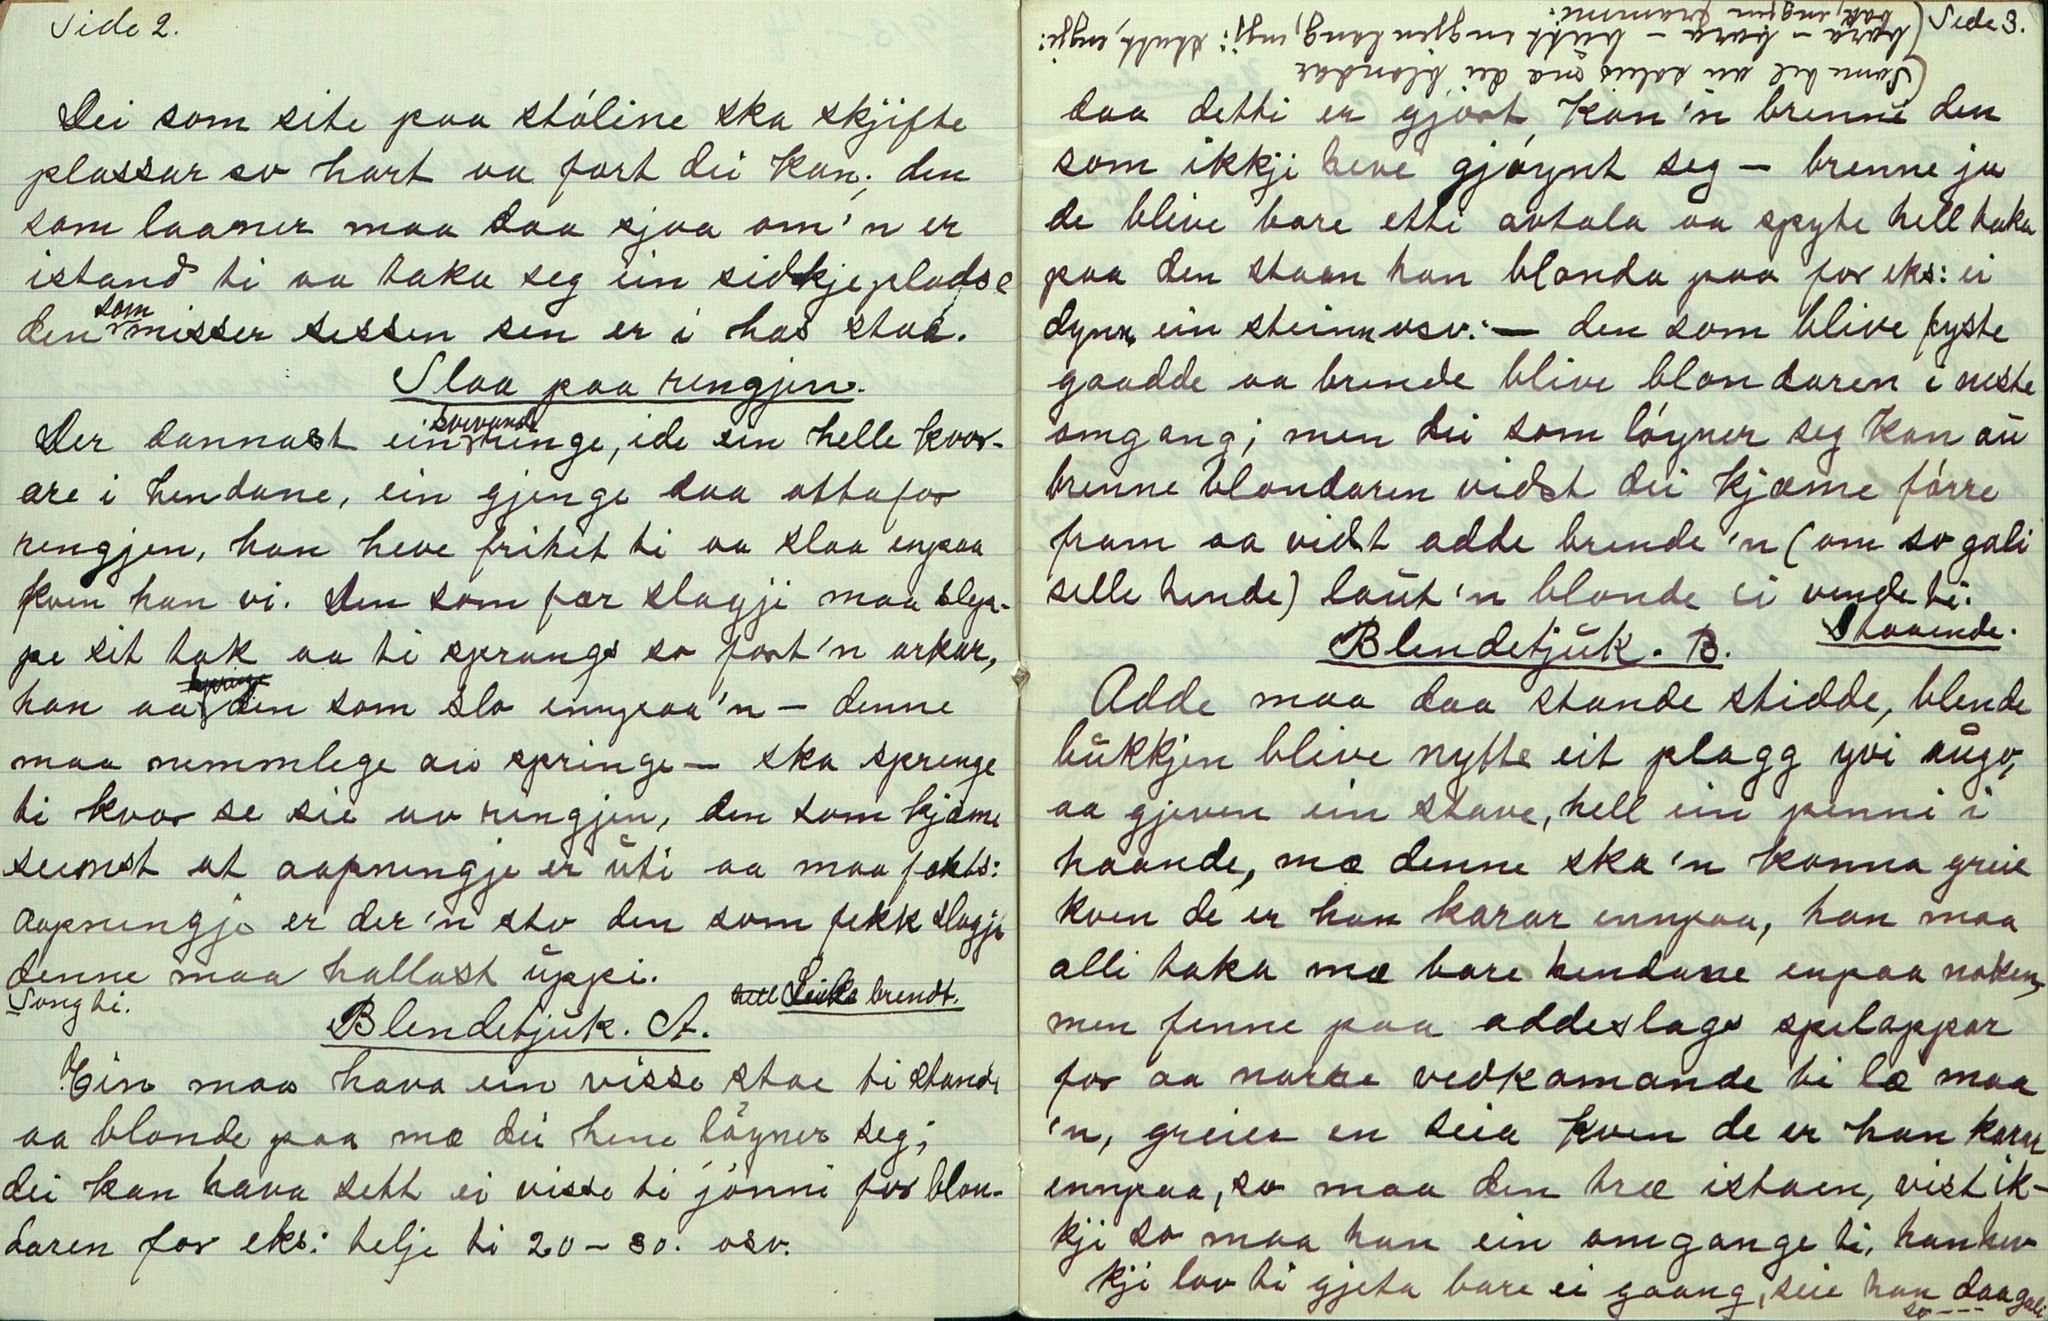 Side 2.
Dei som site paa stóline ska skjifte
plassar so hart aa fort dei kan; den
som laaner maa daa sjaa om'n er
istand ti aa taka seg ein sidkjepladse
den som misser sessen sen er i has stae.
Slaa paa rengjen.
Der dannast ein svivande renge, ide ein helle kvor-
are i hendane, ein gjenge daa attafor
rengjen, han heve friheit ti aa slaa enpaa
kven han vi. Den som fær slagji maa slep-
pe sit tak aa ti sprangs so fort'n arkar,
han aa den som slo ennpaa'n — denne
maa nemmlege au springe — ska sprenge
ti kvar se sie av rengjen, den som kjæme
seinst at aapnengje er ūti aa maa fakts:
Aapnengje er der'n sto den som fekk slagji
denne maa hallast ūppi.
Song ti.
Blendetjūk. A. Leike brendt.
Ein maa hava ein visse stae ti stande
aa blonde paa mæ dei hine löyner seg;
dei kan hava sett ei visse ti jónni for blon-
daren for eks: telje ti 20–30. osv.
Side 3.
(Some tel au solus maa dei blondar
bara — bara — būtt engjen lang, engji stutt, engji
bak, engjen framme.
daa detti er gjórt, kan'n brenne den
som ikkji heve gjóynt seg — brenne ja
de blive bare etti avtala aa spyte hell taka
paa den staen han blonda paa for eks: ei
dynn, ein steinn osv: — den som blive fyste
gaadde aa brende blive blondaren i neste
omgang; men dei som lóyner seg kan aū
brenne blondaren vidst dei kjæme fórre
fram aa vidt adde brende'n (om so gali
selle hende) laūt'n blonde ei vende ti.
Blendetjūk. B. Staaende.
Adde maa daa stande stidde, blende
būkkjen blive nytte eit plagg yvi aūgo,
aa gjeven ein stave, hell ein penni i
haande, mæ denne ska'n kunna greie
kven de er han karar ennpaa, han maa
alli taka mæ bare hendane enpaa noken,
men fenne paa addeslags spelappar
for aa narre vedkamande ti læ maa
'n, greier en seia kven de er han karar
ennpaa, so maa den træ istaen, vist ik-
kji so maa han ein omgange ti, han hev
kji lov ti gjeta bare ei gaang, seie han daa gali
so - - -